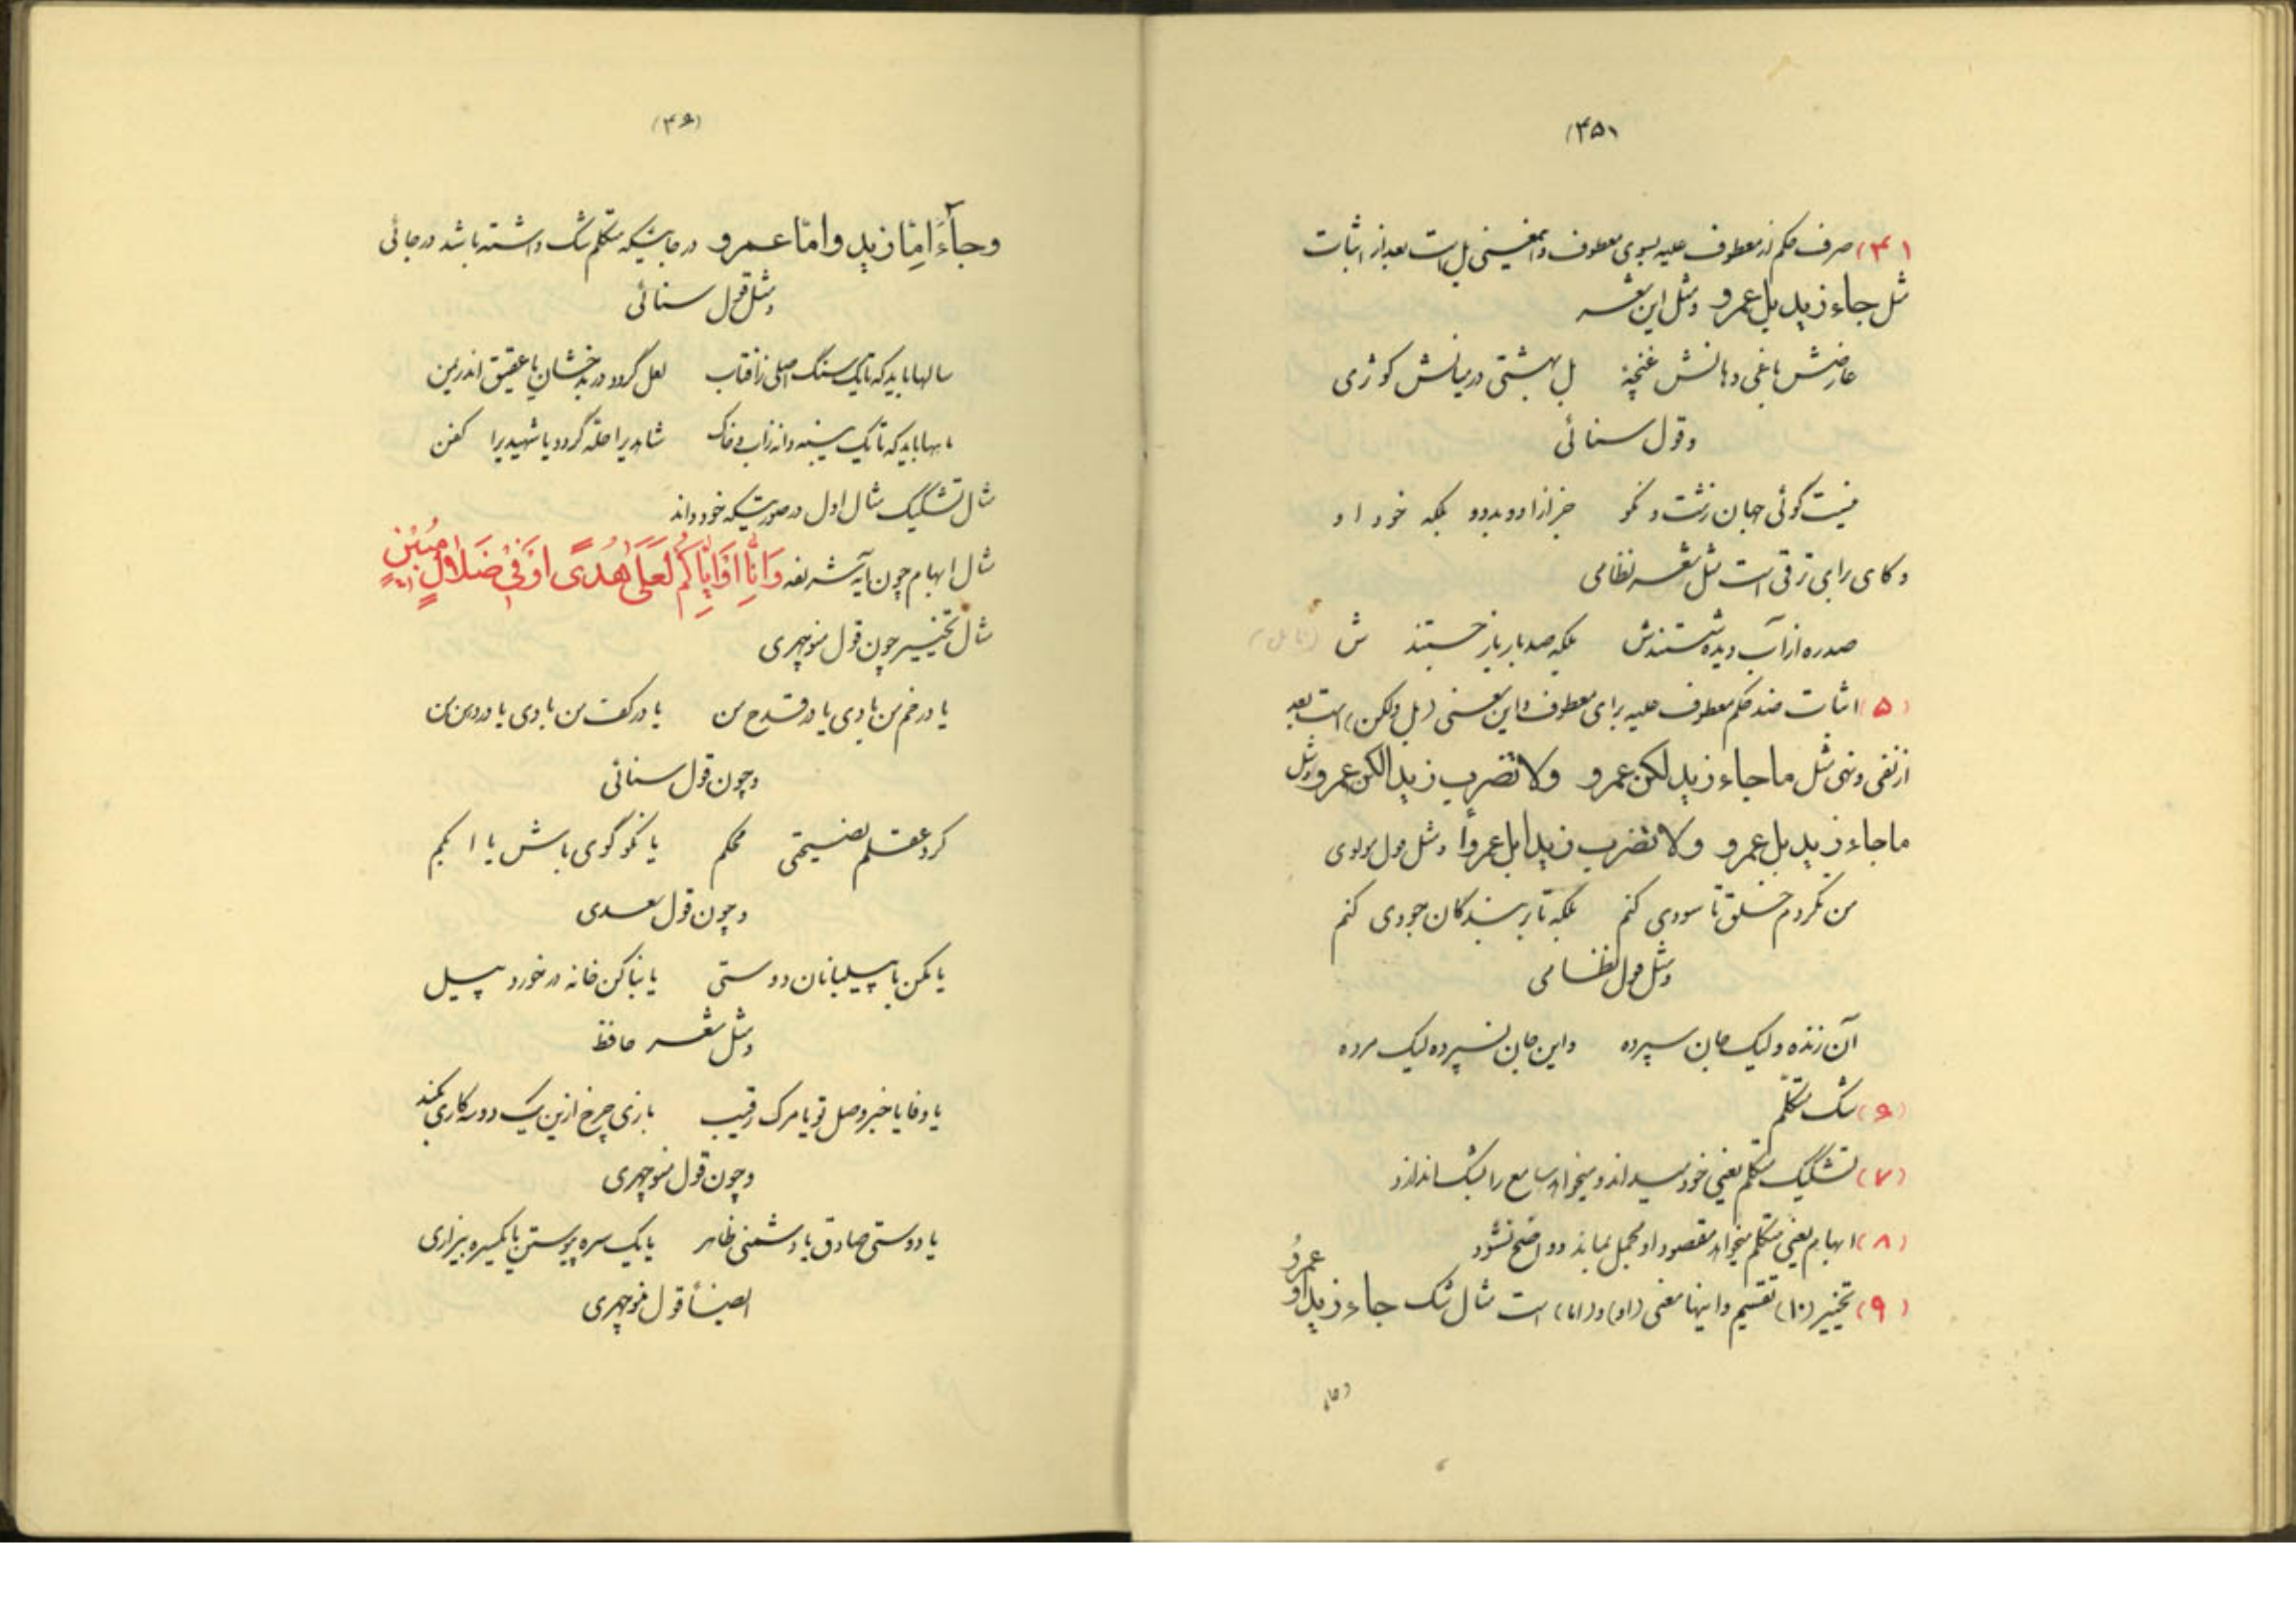 (۳۵)
(۴) صرف حکم از معطوف علیه بسوی معطوف و اینمعنی بل است بعد از اثبات
مثل جاء زید بل عمرو و مثل این شعر
عارضش باغی دهانش غنچهٔ بل بهشتی در میانش کوثری
و قول سنائی
نیست گوئی جهان زشت و نکو جز ازاو و بدو و بلکه خود او
و گاهی برای ترقی است مثل شعر نظامی
صدره از آب دیده شستندش بلکه صد بار باز جستند ش
(۵) اثبات ضد حکم معطوف علیه برای معطوف و این معنی (بل ولکن) است بعد
از نفی و نهی مثل ما جاء زید لکن عمرو ولا تضرب زیدا لکن عمرو و مثل
ما جاء زید بل عمرو ولا تضرب زیدا بل عمروا و مثل قول مولوی
من نکردم خلق تا سودی کنم بلکه تا بر بندگان جودی کنم
و مثل قول نظامی
آن زنده ولیک جان سپرده واین جان نسپرده لیک مرده
(۶) شک متکلم
(۷) تشکیک متکلم یعنی خود میداند و میخواهد سامع را بشک اندازد
(۸) ابهام یعنی متکلم میخواهد مقصود او مجمل بماند و واضح نشود
(۹) تخییر (۱۰) تقسیم و اینها معنی (او) و (اما) است مثال شک جاء زید او عمرو
(۳۶)
وجاء امّا زید وامّا عمرو در جائیکه متکلم شک داشته باشد در جائی
و مثل قول سنائی
سالها باید که تا یک سنگ اصلی ز آفتاب لعل گردد در بدخشان یا عقیق اندر یمن
ماهها باید که تا یک پنبه دانه ز آب و خاک شاهدیرا حله گردد یا شهیدیرا کفن
مثال تشکیک مثال اول در صورتیکه خود داند
مثال ابهام چون آیه شریفه وَاِنّا اَوْ اِیّاکُم لَعَلی هُدًی اَوْ فی ضَلالٍ مُبین
مثال تخییر چون قول منوچهری
یا در خم من بادی یا در قدح من یا در کف من بادی یا در دهن من
و چون قول سنائی
کرد عقلم نصیحتی محکم یا نکو گوی باش یا ابکم
و چون قول سعدی
یا مکن با پیلبانان دوستی یا بنا کن خانه در خورد پیل
و مثل شعر حافظ
یا وفا یا خبر وصل تو یا مرگ رقیب بازی چرخ ازین یک دو سه کاری بکند
و چون قول منوچهری
یا دوستی صادق یا دشمنی ظاهر یا یک سره پیوستن یا یکسره بیزاری
ایضاً قول منوچهری